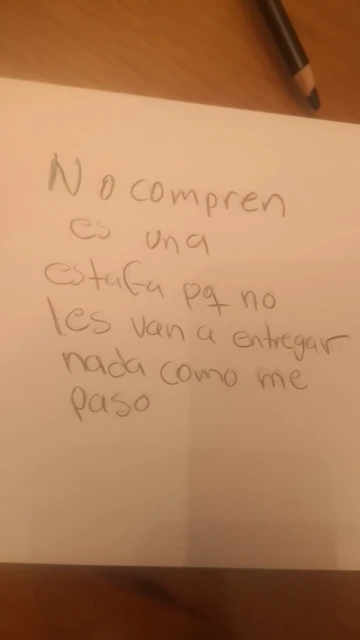 No compren
es una
estafa pq no
les van a entregar
nada como me
paso